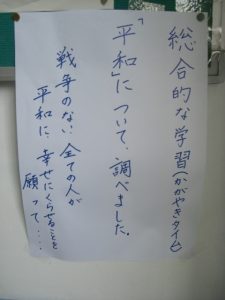 総合的な学習(かがやきタイム)
「平和」について、調べました。
戦争のない、全ての人が
平和に、幸せにくらせることを
願って....